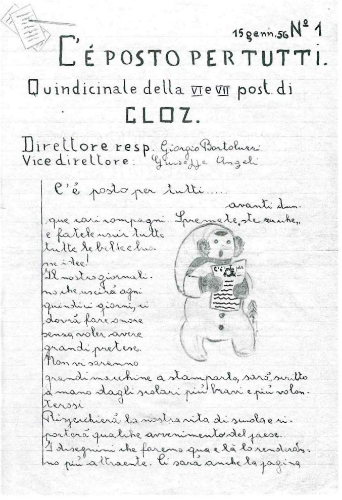 15 genn. 56 Nº 1
C'É POSTO PER TUTTI.
Quindicinale della VI e VII post. di
CLOZ.
Direttore resp. Giorgio Bortolucci
Vice direttore: Giuseppe Angeli
C'é posto per tutti.....
avanti dun-
que cari compagni. Spremete, ste zucche,
e fatele uscir tutte
tutte le belle e buo
ne idee!
Il nostro giornali-
no che uscirà ogni
quindici giorni, ci
dovrà fare onore
senza voler avere
grandi pretese.
Non vi saranno
grandi macchine a stamparlo, sarà scritto
a mano dagli scolari più bravi e più volon-
terosi.
Rispecchierà la nostra vita di scuola e ri-
porterà qualche avvenimento del paese.
I disegnini che faremo qua e là lo renderan-
no più attraente. Ci sarà anche la pagina